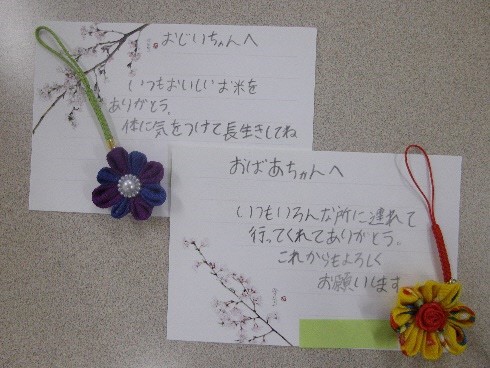 おじいちゃんへ
いつもおいしいお米を
ありがとう。
体に気をつけて長生きしてね
おばあちゃんへ
いつもいろんな所に連れて
行ってくれてありがとう。
これからもよろしく
お願いします